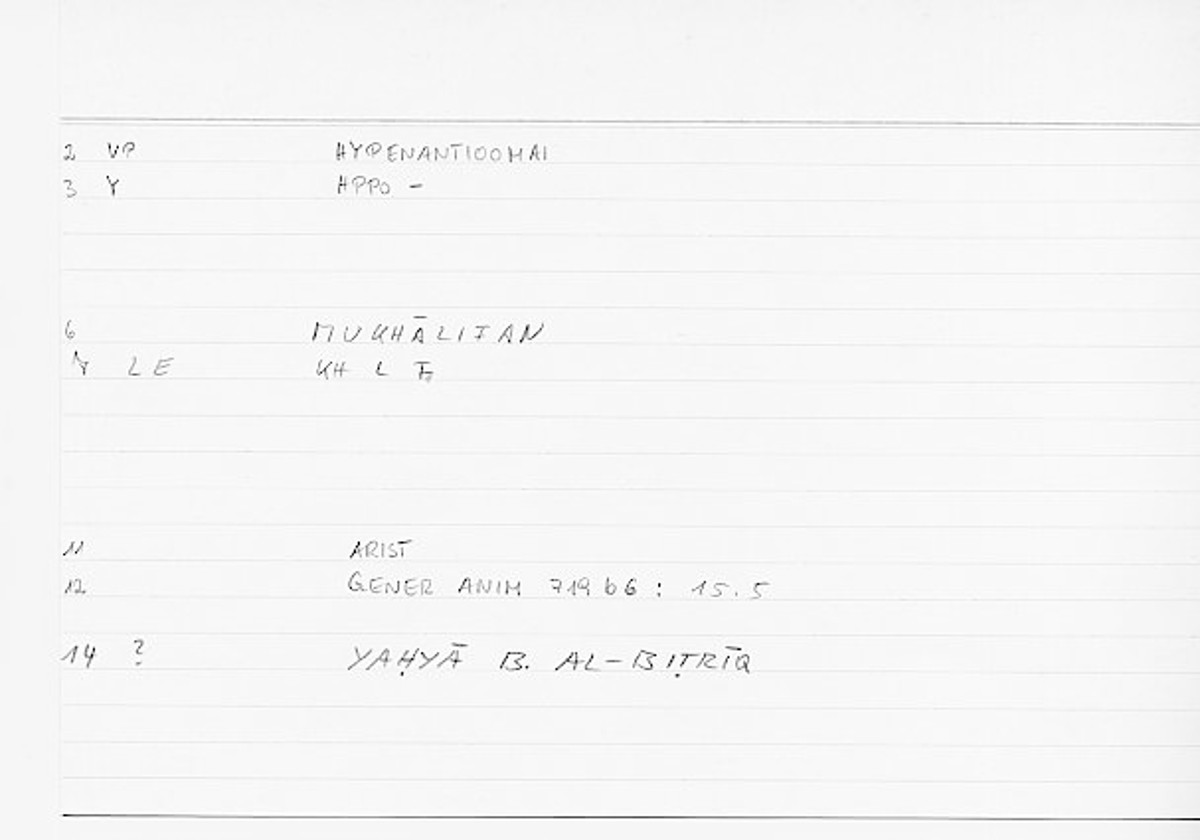 2 VP HYPENANTIOOMAI
3 Y HPPO -
6 MUKHĀLIFAN
7 LE KH L F
11 ARIST
12 GENER ANIM 719 b6 : 15.5
14 ? YAḤYĀ B. AL-BIṬRĪQ